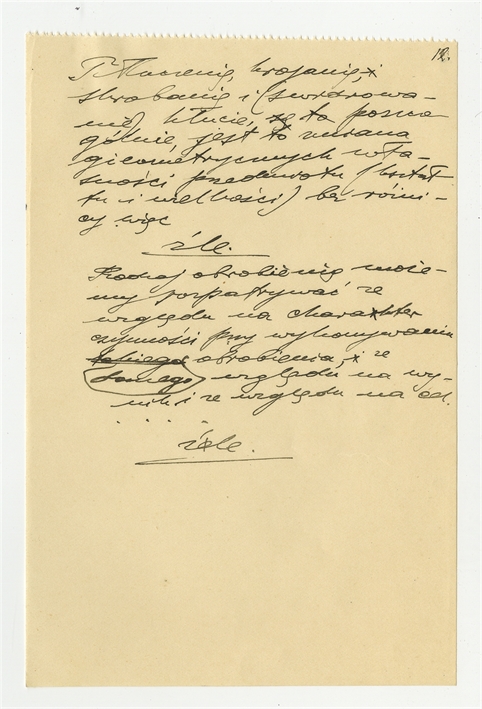 12.
Tłuczenie, krojenie, i
skrobanie i (świdrowa-
nie) kłucie, są to poszcze
gólnie, jest to zmiana
gieometrycznych wła-
sności przedmiotu (kształ
tu i wielkości) bez różni-
cy więc
źle.
Rodzaj obrobienia może-
my rozpatrywać ze
względu na charakter
czynności przy wykonywaniu
obrobienia, i ze
samego względu na wy-
nik i ze względu na cel.
. . . . .
źle.